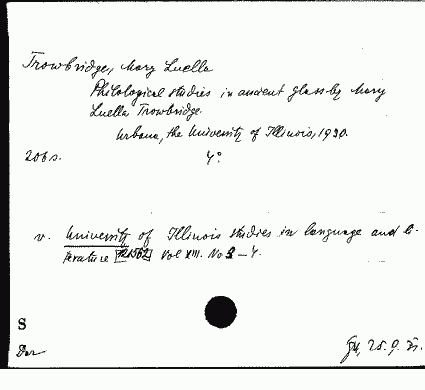 Trowbridge, Mary Luella
Philological studies in ancient glass by Mary
Luella Trowbridge.
Urbana, the University of Illinois, 1930.
206 s. 4°
v. University of Illinois studies in language and li-
terature Vol XIII. No 3-4.
S
Dar
25.9.